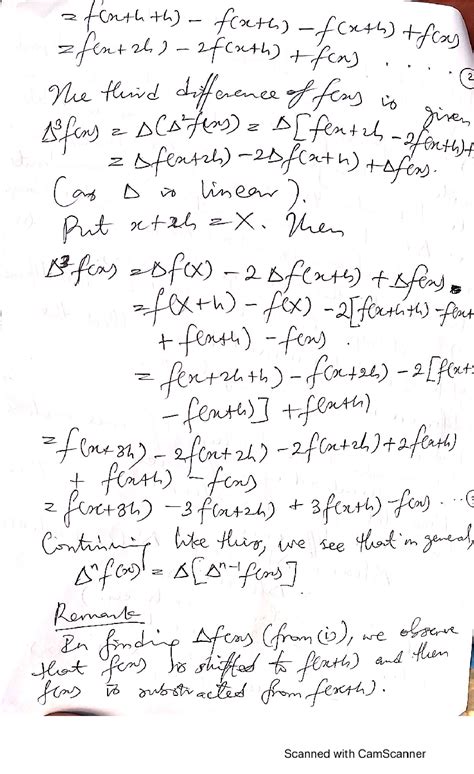 = f(x+h+h) - f(x+h) - f(x+h) + f(x)
= f(x+2h) - 2f(x+h) + f(x) . . . . (2
The third difference of f(x) is given
Δ³f(x) = Δ(Δ²f(x)) = Δ[f(x+2h - 2f(x+h)+
= Δf(x+2h) - 2Δf(x+h) + Δf(x).
(as Δ is linear).
Put x+2h = X. Then
Δ³f(x) = Δf(X) - 2Δf(x+h) + Δf(x)
= f(X+h) - f(X) - 2[f(x+h+h) - f(x+
+ f(x+h) - f(x).
= f(x+2h+h) - f(x+2h) - 2[f(x+
- f(x+h)] + f(x+h)
= f(x+3h) - 2f(x+2h) - 2f(x+2h) + 2f(x+h)
+ f(x+h) - f(x)
= f(x+3h) - 3f(x+2h) + 3f(x+h) - f(x) ... (
Continuing like this, we see that in general,
Δⁿf(x) = Δ[Δⁿ⁻¹f(x)]
Remark
In finding Δf(x) (from (i)), we observe
that f(x) is shifted to f(x+h) and then
f(x) is substracted from f(x+h).
Scanned with CamScanner